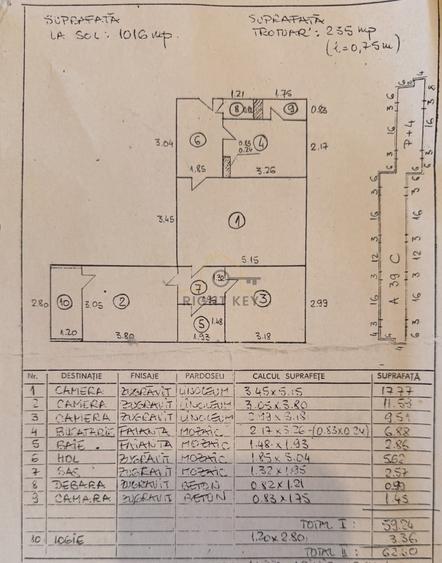 SUPRAFAȚĂ
LA SOL: 1016 mp.
SUPRAFAȚĂ
TROTUAR: 235 mp
(l=0,75m)
1.21
1.75
8
9
0.83
3.04
6
0.83
0.24
4
2.17
1.85
3.26
3.45
1
5.15
2.80
10
3.05
2
7
1.32
1.95
3
2.99
RIGHT KEY
5
1.48
1.20
3.80
1.93
3.18
P+4
A 39 C
Nr. DESTINAȚIE FINISAJE PARDOSELI CALCUL SUPRAFEȚE SUPRAFAȚĂ
1 CAMERA ZUGRĂVIT LINOLEUM 3.45x5.15 17.77
2 CAMERA ZUGRAVIT LINOLEUM 3.05x3.80 11.59
3 CAMERA ZUGRAVIT LINOLEUM 2.99x3.18 9.51
4 BUCATARIE FAIANTA MOZAIC 2.17x3.26-(0.83x0.24) 6.88
5 BAIE FAIANTA MOZAIC 1.48x1.93 2.86
6 HOL ZUGRAVIT MOZAIC 1.85x3.04 5.62
7 SAS ZUGRAVIT MOZAIC 1.32x1.95 2.57
8 DEBARA ZUGRAVIT BETON 0.82x1.21 0.99
9 CAMARA ZUGRAVIT BETON 0.83x1.75 1.45
TOTAL I : 59.24
10 LOGIE 1.20x2.80 3.36
TOTAL II : 62.60